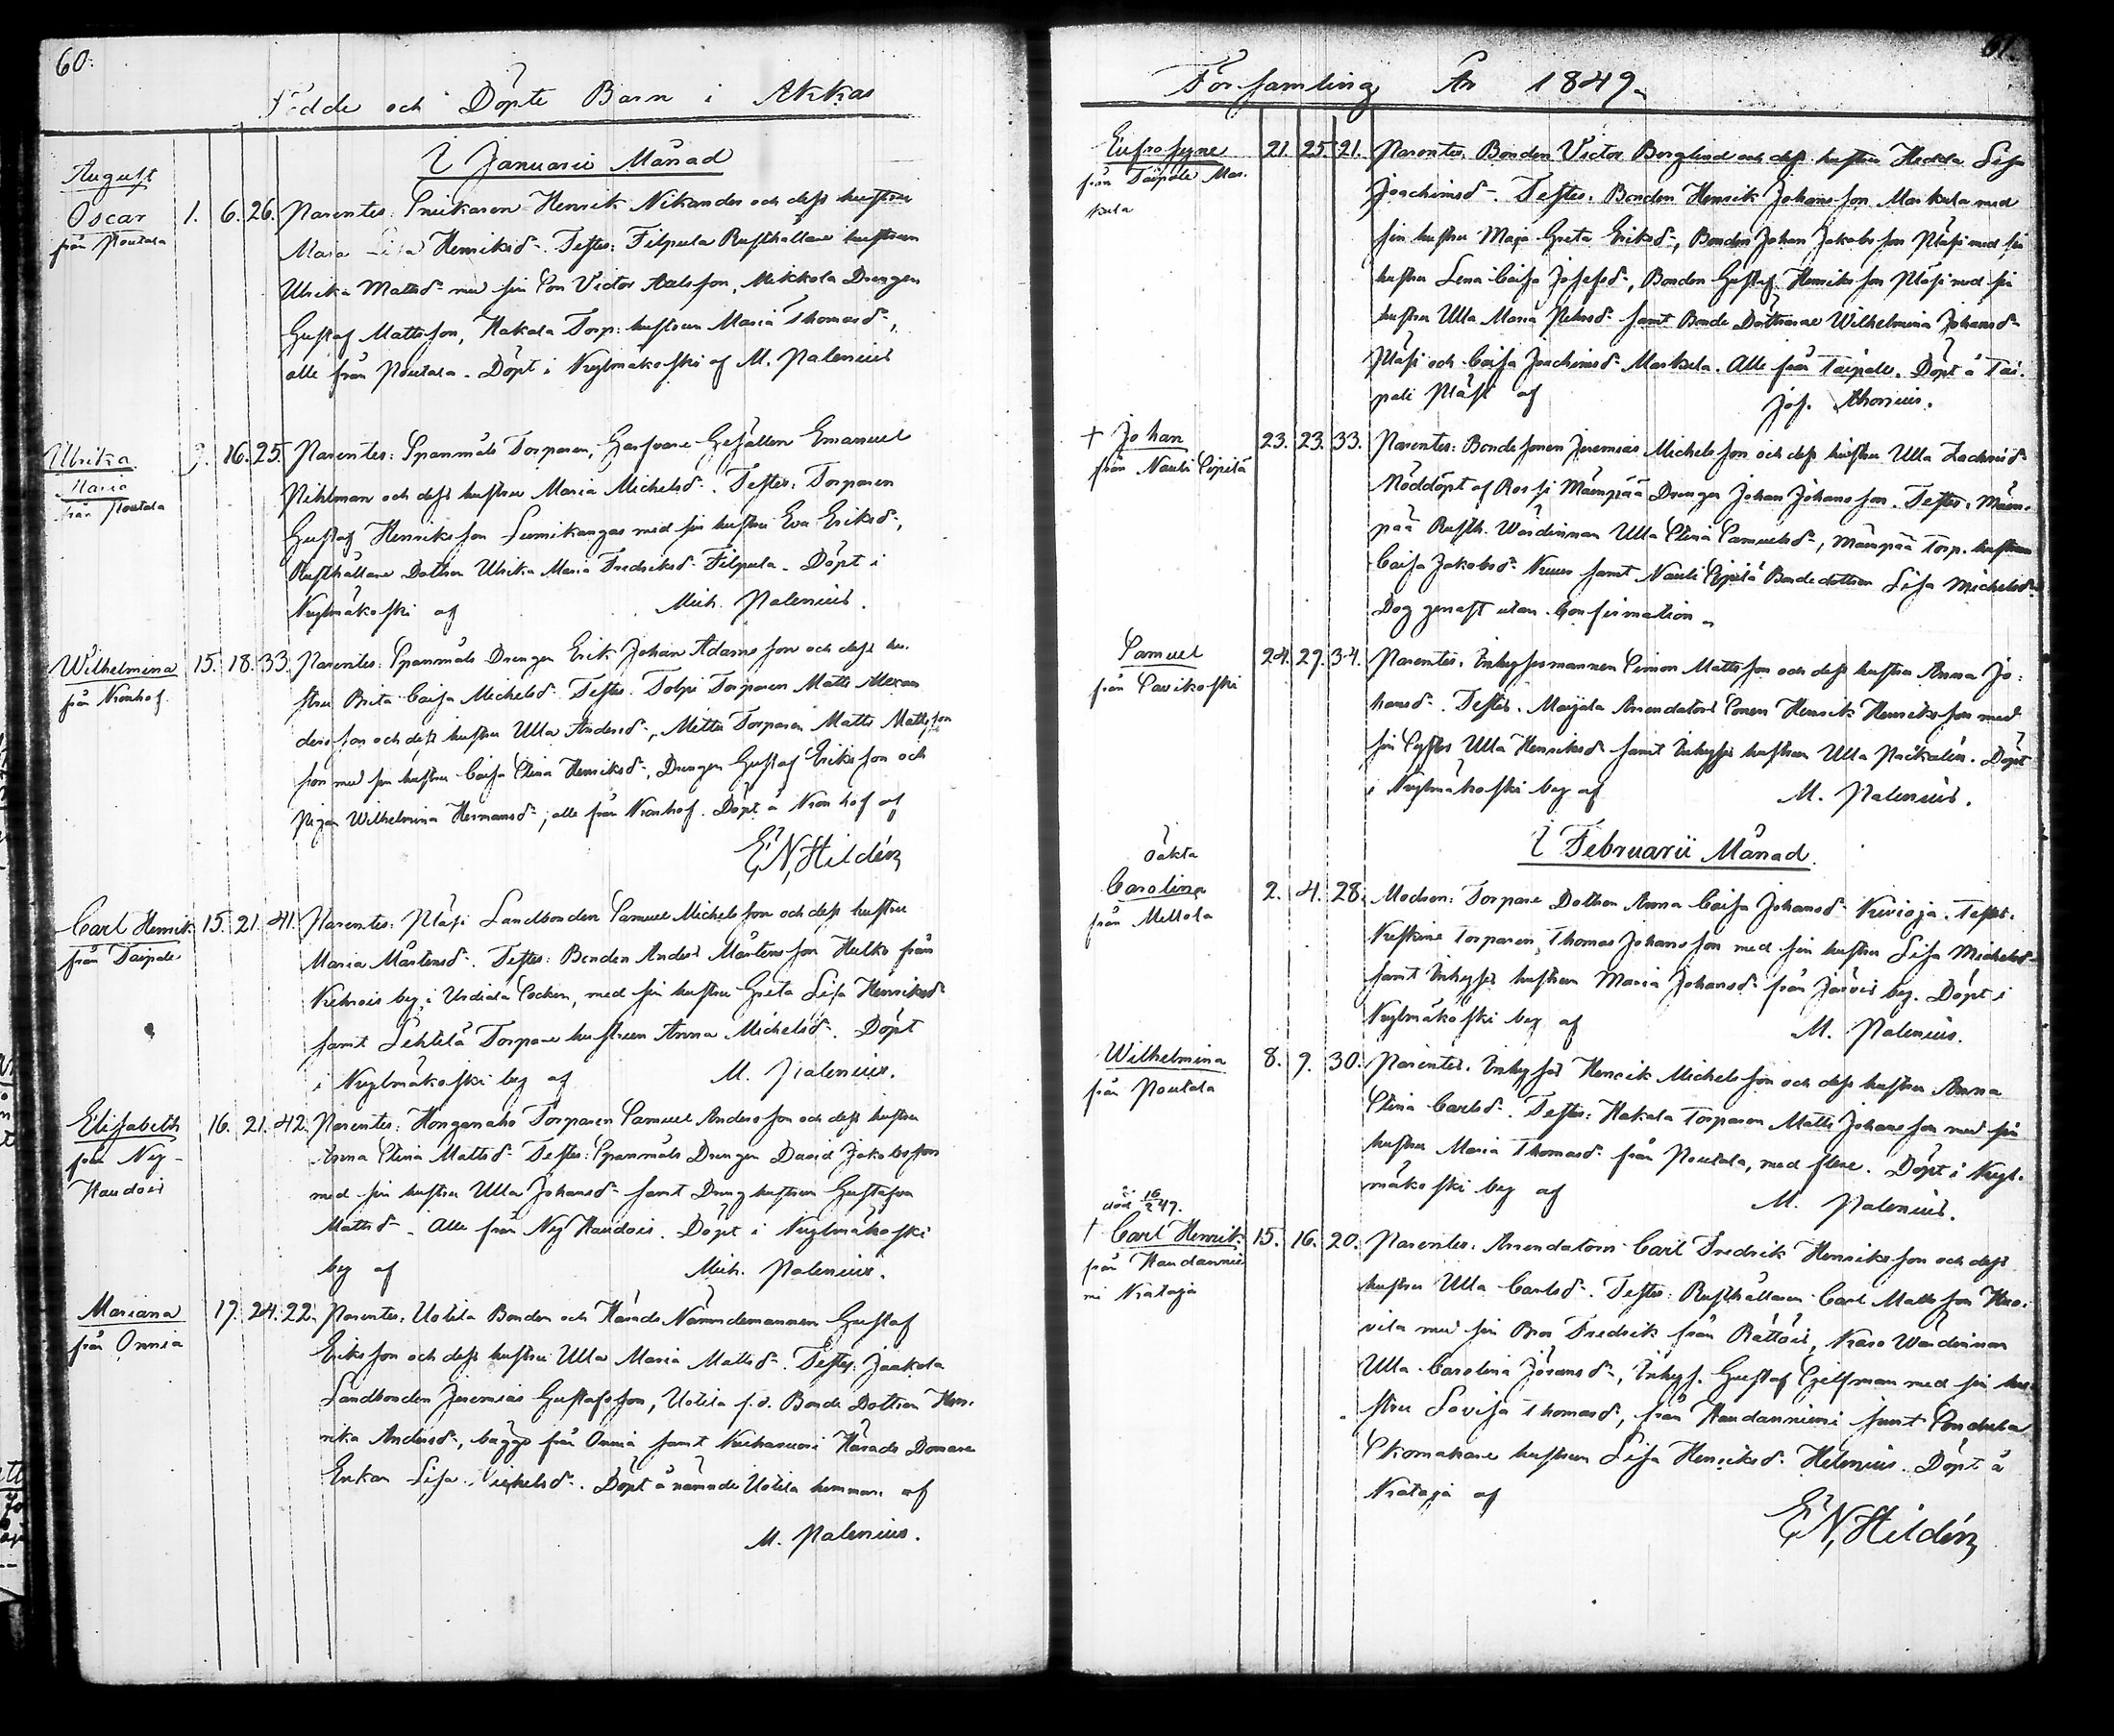 60.
Födde och Döpte Barn i Akkas
I Januarii Månad
August
Oscar
från Noutala
1. 6. 26.
Parentes: Snickaren Henrik Nikander och dess hustru
Maja Lisa Henriksdr. Testes: Filpula Rusthållare hustrun
Ulrika Mattsdr med sin Son Victor Axelsson, Mikkola Drengen
Gustaf Mattsson, Hakala Torp: hustrun Maria Thomasdr,
alle från Noutala. Döpt i Kylmäkoski af M. Palenius
Ulrika
Maria
från Noutala
16. 25.
Parentes: Spannmåls Torparen, Garfvare Gesällen Emanuel
Pihlman och dess hustru Maria Michelsdr. Testes: Torparen
Gustaf Henriksson Surnikangas med sin hustru Eva Eriksdr,
Rusthållare Dottren Ulrika Maria Fredriksdr Filpula. Döpt i
Kylmäkoski af Mich. Palenius.
Wilhelmina
från Kronhof
15. 18. 33.
Parentes: Spannmåls Drengen Erik Johan Adamsson och dess hu-
stru Brita Caisa Michelsdr. Testes: Tolpi Torparen Matts Alexan
dersson och dess hustru Ulla Andersdr, Mitti Torparen Matts Mattsson
son med sin hustru Caisa Stina Henriksdr, Drengen Gustaf Eriksson och
Pigan Wilhelmina Hermansdr, alle från Kronhof. Döpt å Kronhof af
E. N. Hildén
Carl Henrik
från Taipale
15. 21. 41.
Parentes: Pläsi Landbonden Samuel Michelsson och dess hustru
Maria Mårtensdr. Testes: Bonden Anders Mårtensson Hulko från
Kehrois by i Urdiala Socken, med sin hustru Greta Lisa Henriksdr
samt Lehtilä Torpare hustrun Anna Michelsdr. Döpt
i Kylmäkoski by af M. Palenius.
Elisabeth
från Ny-
Haudois
16. 21. 42.
Parentes: Honganaho Torparen Samuel Andersson och dess hustru
Anna Stina Mattsdr. Testes: Spannmåls Drengen David Jakobsson
med sin hustru Ulla Johansdr samt Dreng hustrun Gustafva
Mattsdr. Alle från Ny Haudois. Döpt i Kylmäkoski
by af Mich. Palenius.
Mariana
från Onnia
17. 24. 22.
Parentes: Uotila Bonden och Härads Nämndemannen Gustaf
Eriksson och dess hustru Ulla Maria Mattsdr. Testes: Jaakola
Landbonden Jeremias Gustafsson, Uotila f.d. Bonde Dottren Hen-
rika Andersdr, bägge från Onnia samt Härads Domare
Enkan Lisa Michelsdr. Döpt å nämnde Uotila hemman af
M. Palenius.
61.
Församling År 1849.
Eufrosyne
från Taipale Mar-
kula
21. 25. 21.
Parentes: Bonden Victor Berglund och dess hustru Hedda Lisa
Joachimsdr. Testes: Bonden Henrik Johansson Markula med
sin hustru Maja Greta Eriksdr, Bonden Johan Jakobsson Pläsi med sin
hustru Lena Caisa Josefsdr, Bonden Gustaf Henriksson Pläsi med sin
hustru Ulla Maria Pehrsdr samt Bonde Döttrarne Wilhelmina Johansdr
Pläsi och Caisa Joachimsdr Markula. Alle från Taipale. Döpt å Tai-
pale Pläsi af Jos. Ahonius.
† Johan
från Nauli Sipilä
23. 23. 33.
Parentes: Bondesonen Jeremias Michelsson och dess hustru Ulla Zachrisdr
Nöddöpt af Rossi Mäenpää Drengen Johan Johansson. Testes: Mäen-
pää Rusth. Wärdinnan Ulla Stina Samuelsdr, Mäenpää Torp. hustrun
Caisa Jakobsdr Kuus samt Nauli Sipilä Bondedottren Lisa Michelsdr.
Dog genast utan Confirmation.
Samuel
från Savikoski
24. 27. 34.
Parentes: Inhysesmannen Simon Mattsson och dess hustru Anna Jo-
hansdr. Testes: Maijala Arrendators Sonen Henrik Henriksson med
sin Syster Ulla Henriksdr samt Inhyses hustrun Ulla Packalén. Döpt
i Kylmäkoski by af M. Palenius.
I Februarii Månad.
Oäkta
Carolina
från Mellola
2. 4. 28.
Modren: Torpare Dottren Anna Caisa Johansdr Kivioja. Testes:
Torparen Thomas Johansson med sin hustru Lisa Michelsdr
samt Inhyses hustrun Maria Johansdr från Järvis by. Döpt i
Kylmäkoski by af M. Palenius.
Wilhelmina
från Noutala
8. 9. 30.
Parentes: Inhyses Henrik Michelsson och dess hustru Anna
Stina Carlsdr. Testes: Hakala Torparen Matts Johansson med sin
hustru Maria Thomasdr från Noutala, med flere. Döpt i Kyl-
mäkoski by af M. Palenius.
död 16/2 49.
† Carl Henrik
från Haudannie
mi Kataja
15. 16. 20.
Parentes: Arrendatorn Carl Fredrik Henriksson och dess
hustru Ulla Carlsdr. Testes: Rusthållaren Carl Mattsson Huo-
vila med sin Bror Fredrik från Rättöis, Wärdinnan
Ulla Carolina Göransdr, Inhys. Gustaf Gelfman med sin hu-
stru Lovisa Thomasdr, från Haudanniemi samt Sondula
Skomakare hustrun Lisa Henriksdr Helenius. Döpt å
Kataja af
E. N. Hildén